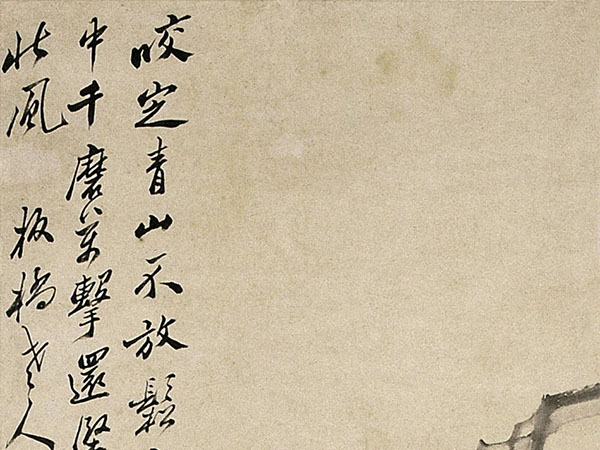 咬定青山不放鬆
中千磨萬擊還堅
北風 板橋老人